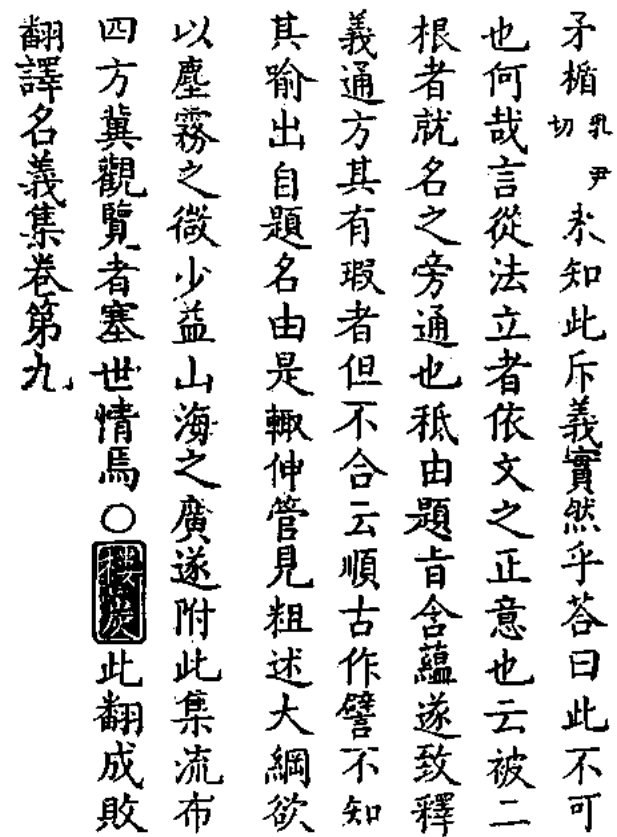 矛楯乳尹切未知此斥義實然乎荅曰此不可
也何哉言從法立者依文之正意也云被二
根者就名之旁通也秪由題旨含蘊遂致釋
義通方其有瑕者但不合云順古作譬不知
其喻出自題名由是輙伸管見粗述大綱欲
以塵霧之微少益山海之廣遂附此集流布
四方冀觀覽者塞世情焉○樓炭此翻成敗
翻譯名義集卷第九